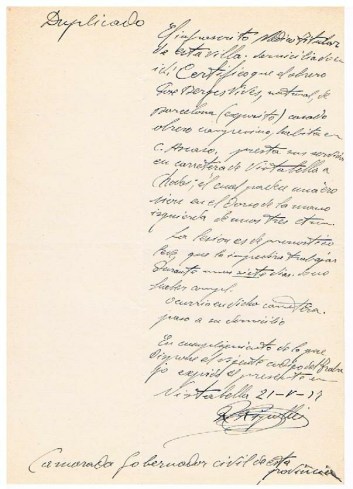 Duplicado
El infrascrito Medico titular
de esta villa, domiciliado en
id: Certifico que el obrero
José Verges Vives, natural de
Barcelona (expósito) casado
obrero campesino, habita en
C. Amaro, presta sus servicios
en carretera de Vistabella a
Chodos; el cual padece una ero
sión en el Dorso de la mano
izquierda de unos tres ctm.
La lesion es de pronostico
leve, que le impedira trabajar
durante unos siete dias
Ocurrió en dicha carretera.
paso a su domicilio
En cumplimiento de lo que
dispone el vigente codigo del Traba
jo expido el presente en
Vistabella 21-V-37
Camarada Gobernador civil de esta
provincia